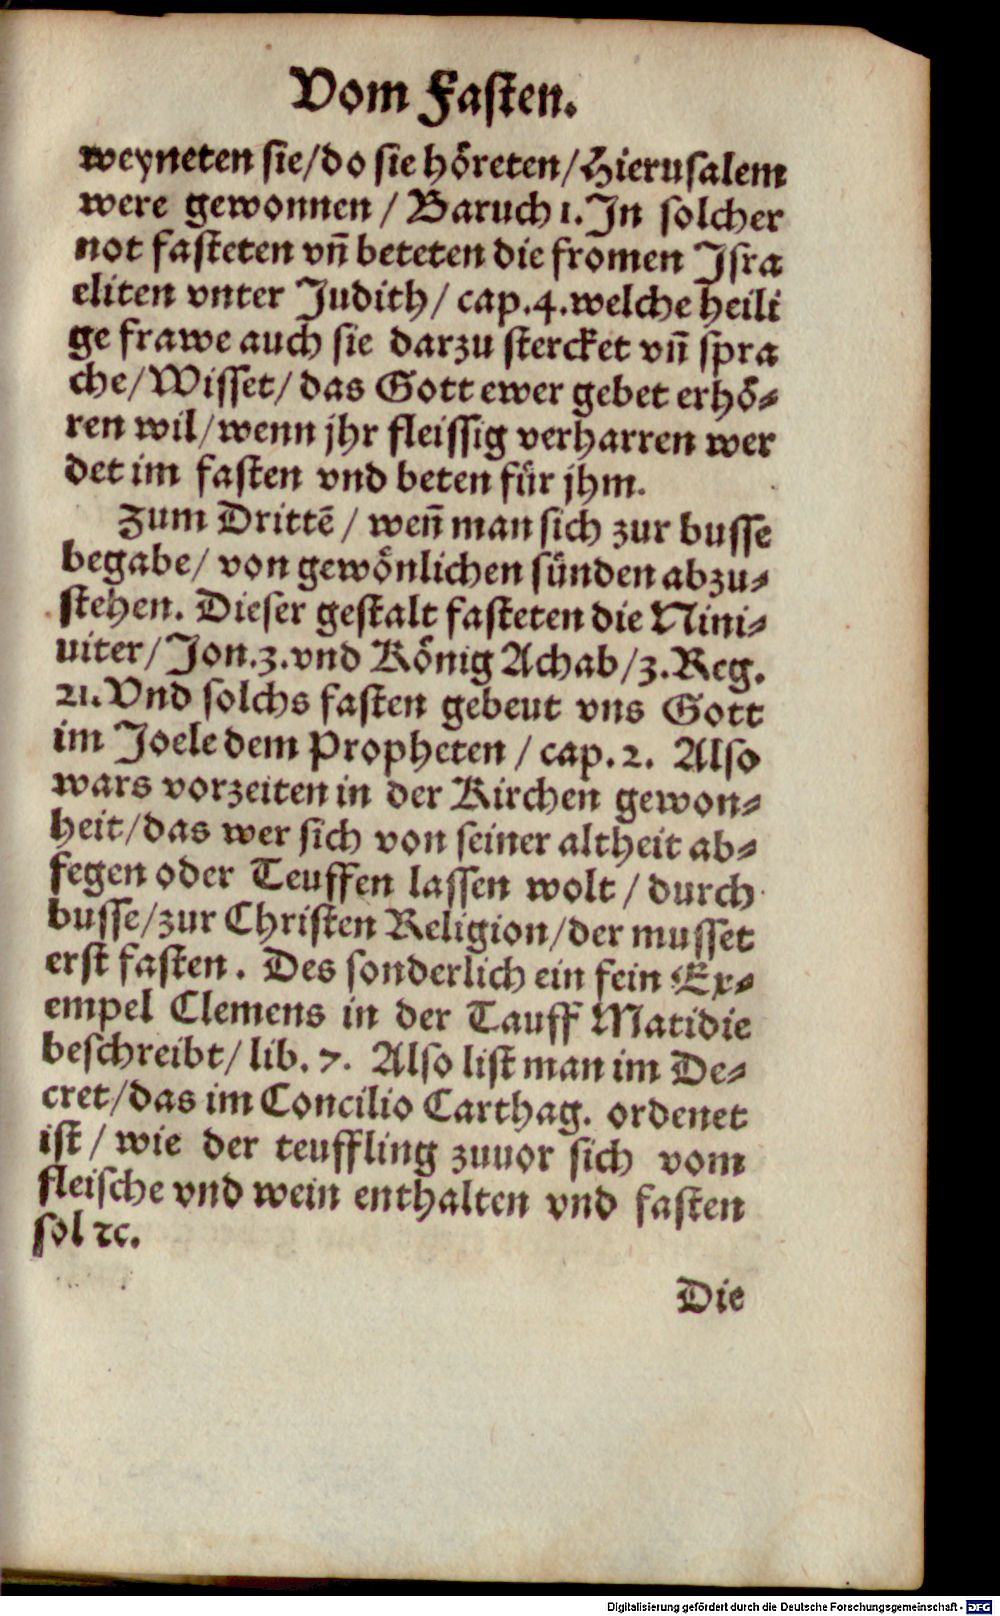 Vom Fasten.
weyneten sie/do sie höreten/Hierusalem
were gewonnen / Baruch 1. In solcher
not fasteten vñ beteten die fromen Isra
eliten vnter Judith/ cap.4.welche heili
ge frawe auch sie darzu stercket vñ spra
che/Wisset/ das Gott ewer gebet erhö-
ren wil/wenn jhr fleissig verharren wer
det im fasten vnd beten für jhm.
Zum Drittē / weñ man sich zur busse
begabe/ von gewönlichen sünden abzu-
stehen. Dieser gestalt fasteten die Nini-
uiter/Jon.3.vnd König Achab/3.Reg.
21.Vnd solchs fasten gebeut vns Gott
im Joele dem Propheten / cap.2. Also
wars vorzeiten in der Kirchen gewon-
heit/das wer sich von seiner altheit ab-
fegen oder Teuffen lassen wolt / durch
busse/zur Christen Religion/der musset
erst fasten. Des sonderlich ein fein Ex-
empel Clemens in der Tauff Matidie
beschreibt/ lib.7. Also list man im De-
cret/das im Concilio Carthag. ordenet
ist / wie der teuffling zuuor sich vom
fleische vnd wein enthalten vnd fasten
sol ꝛc.
Die
Digitalisierung gefördert durch die Deutsche Forschungsgemeinschaft - DFG